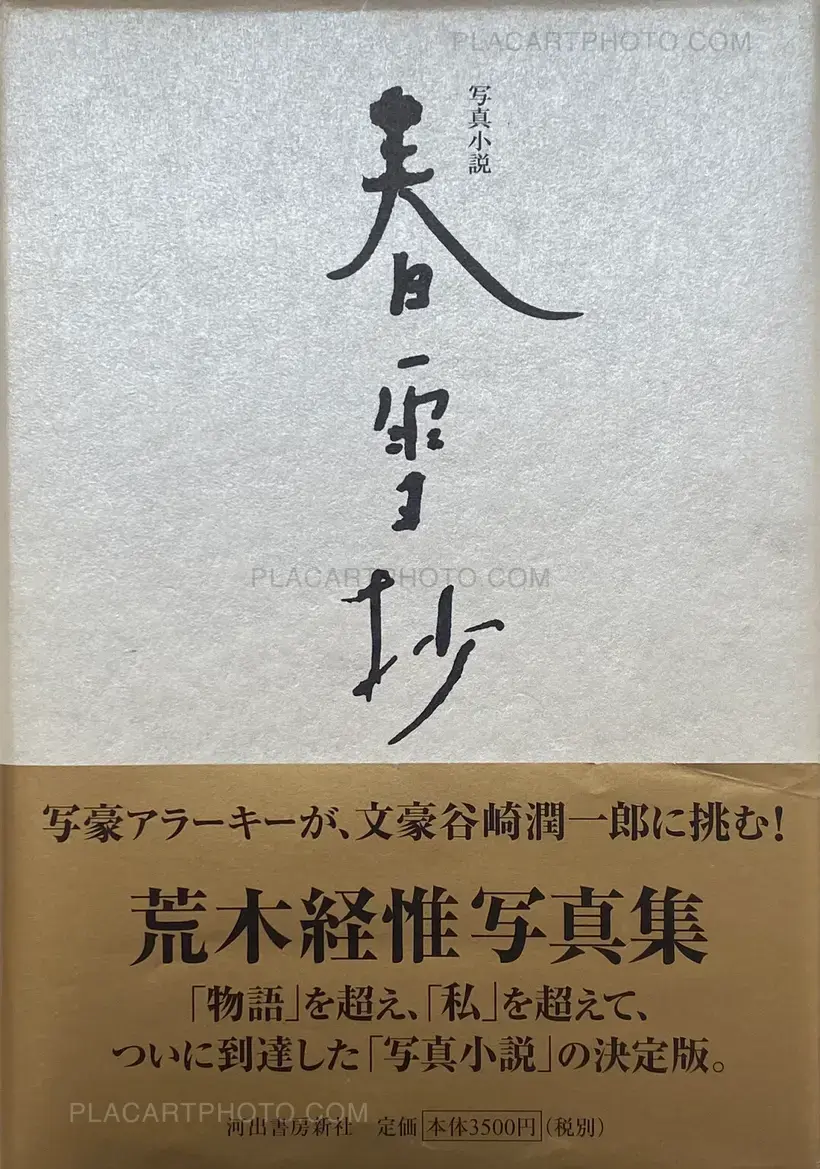 PLACARTPHOTO.COM
写真小説
春雪抄
PLACARTPHOTO.COM
写豪アラーキーが、文豪谷崎潤一郎に挑む!
荒木経惟写真集
「物語」を超え、「私」を超えて、
ついに到達した「写真小説」の決定版。
PLACARTPHOTO.COM
河出書房新社 定価 本体3500円(税別)